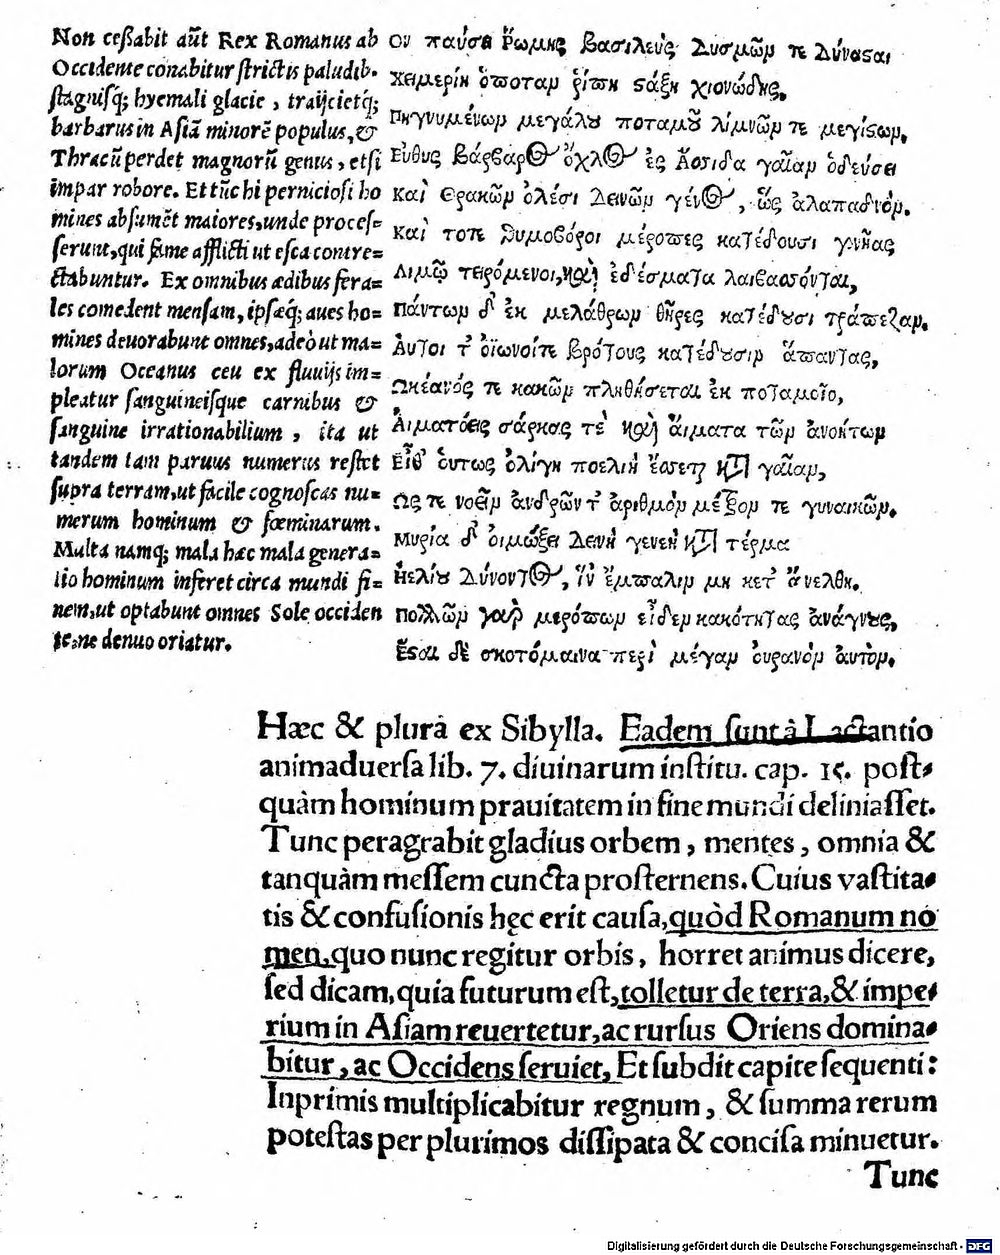 Non ceßabit aūt Rex Romanus ab
Occidente conabitur strictis paludib.
stagnisq́; hyemali glacie, traijcietq́;
barbarus in Asiā minorē populus, &
Thracū perdet magnorū genus, etsi
impar robore. Et tūc hi perniciosi ho
mines absumēt maiores, unde proces=
serunt, qui fame afflicti ut esca contre=
ctabuntur. Ex omnibus ædibus fera=
les comedent mensam, ipsæq́; aues ho=
mines deuorabunt omnes, adeò ut ma=
lorum Oceanus ceu ex fluuijs im=
pleatur sanguineisque carnibus &
sanguine irrationabilium, ita ut
tandem tam paruus numerus restet
supra terram, ut facile cognoscas nu=
merum hominum & fœminarum.
Multa namq; mala hæc mala genera=
tio hominum inferet circa mundi fi=
nem, ut optabunt omnes Sole occiden
te, ne denuo oriatur.
Ου παύσει Ῥώμης βασιλεὺς Δυσμῶν τε Δύναςαι
Χειμερίη ὁπόταν ῥίπη ςάξῃ χιονώδης,
Πηγνυμένων μεγάλου ποταμοῦ λίμνῶν τε μεγίςων,
Εὐθὺς βάρβαρος ὄχλος ἐς Ἄσιδα γαῖαν ὁδεύσει
Καὶ Θρακῶν ὀλέσι Δεινῶν γένος, ὥς ἀλαπαδνόν.
Καὶ τοτε θυμοβόροι μέροπες κατέδουσι
Λιμῷ τειρόμενοι, καὶ ἐδέσματα
Πάντων δ' ἐκ μελάθρων θῆρες κατέδουσι τράπεζαν,
Ἀυτοι τ' ὀϊωνοίτε βρότους κατέδουσιν ἅπαντας,
Ωκέανός τε κακῶν πληθήσεται ἐκ ποταμοῖο,
Ἁιματόεις σάρκας τὲ καὶ ἅιματα τῶν ἀνοήτων
Εἶθ' ὁυτως ὀλίγη ἔσσετ' κατὰ γαῖαν,
Ως τε νοεῖν ἀνδρῶν τ' ἀριθμὸν μέτρον τε γυναικῶν.
Μυρία δ' οἰμώξει Δεινὴ γενεὴ κατὰ τέρμα
Ἠελίου Δύνοντος, ἵν' ἔμπαλιν μη κετ' ἄνελθη.
Πολλῶν γαὰρ μερόπων εἶδεν κακότητας ἀνάγνους,
Ἔςαι δὲ σκοτόμαινα περὶ μέγαν ὀυρανὸν ἀυτὸν.
Hæc & plura ex Sibylla. Eadem sunt à Lactantio
animaduersa lib. 7. diuinarum institu. cap. 15. post=
quàm hominum prauitatem in fine mundi deliniasset.
Tunc peragrabit gladius orbem, mentes, omnia &
tanquàm messem cuncta prosternens. Cuius vastita=
tis & confusionis hęc erit causa, quòd Romanum no
men, quo nunc regitur orbis, horret animus dicere,
sed dicam, quia futurum est, tolletur de terra, & impe=
rium in Asiam reuertetur, ac rursus Oriens domina=
bitur, ac Occidens seruiet, Et subdit capite sequenti:
Inprimis multiplicabitur regnum, & summa rerum
potestas per plurimos dissipata & concisa minuetur.
Tunc
Digitalisierung gefördert durch die Deutsche Forschungsgemeinschaft - DFG